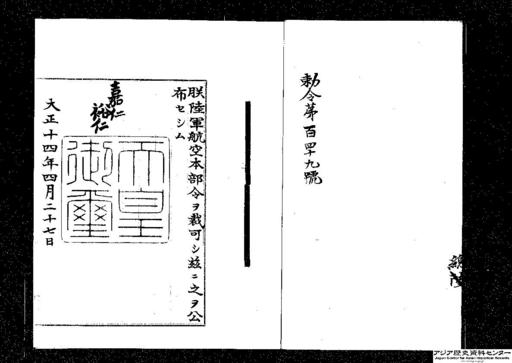 勅令第百四十九號
朕陸軍航空本部令ヲ裁可シ茲ニ之ヲ公
布セシム
嘉仁
裕仁
天皇
御璽
大正十四年四月二十七日
アジア歴史資料センター
Japan Center for Asian Historical Records